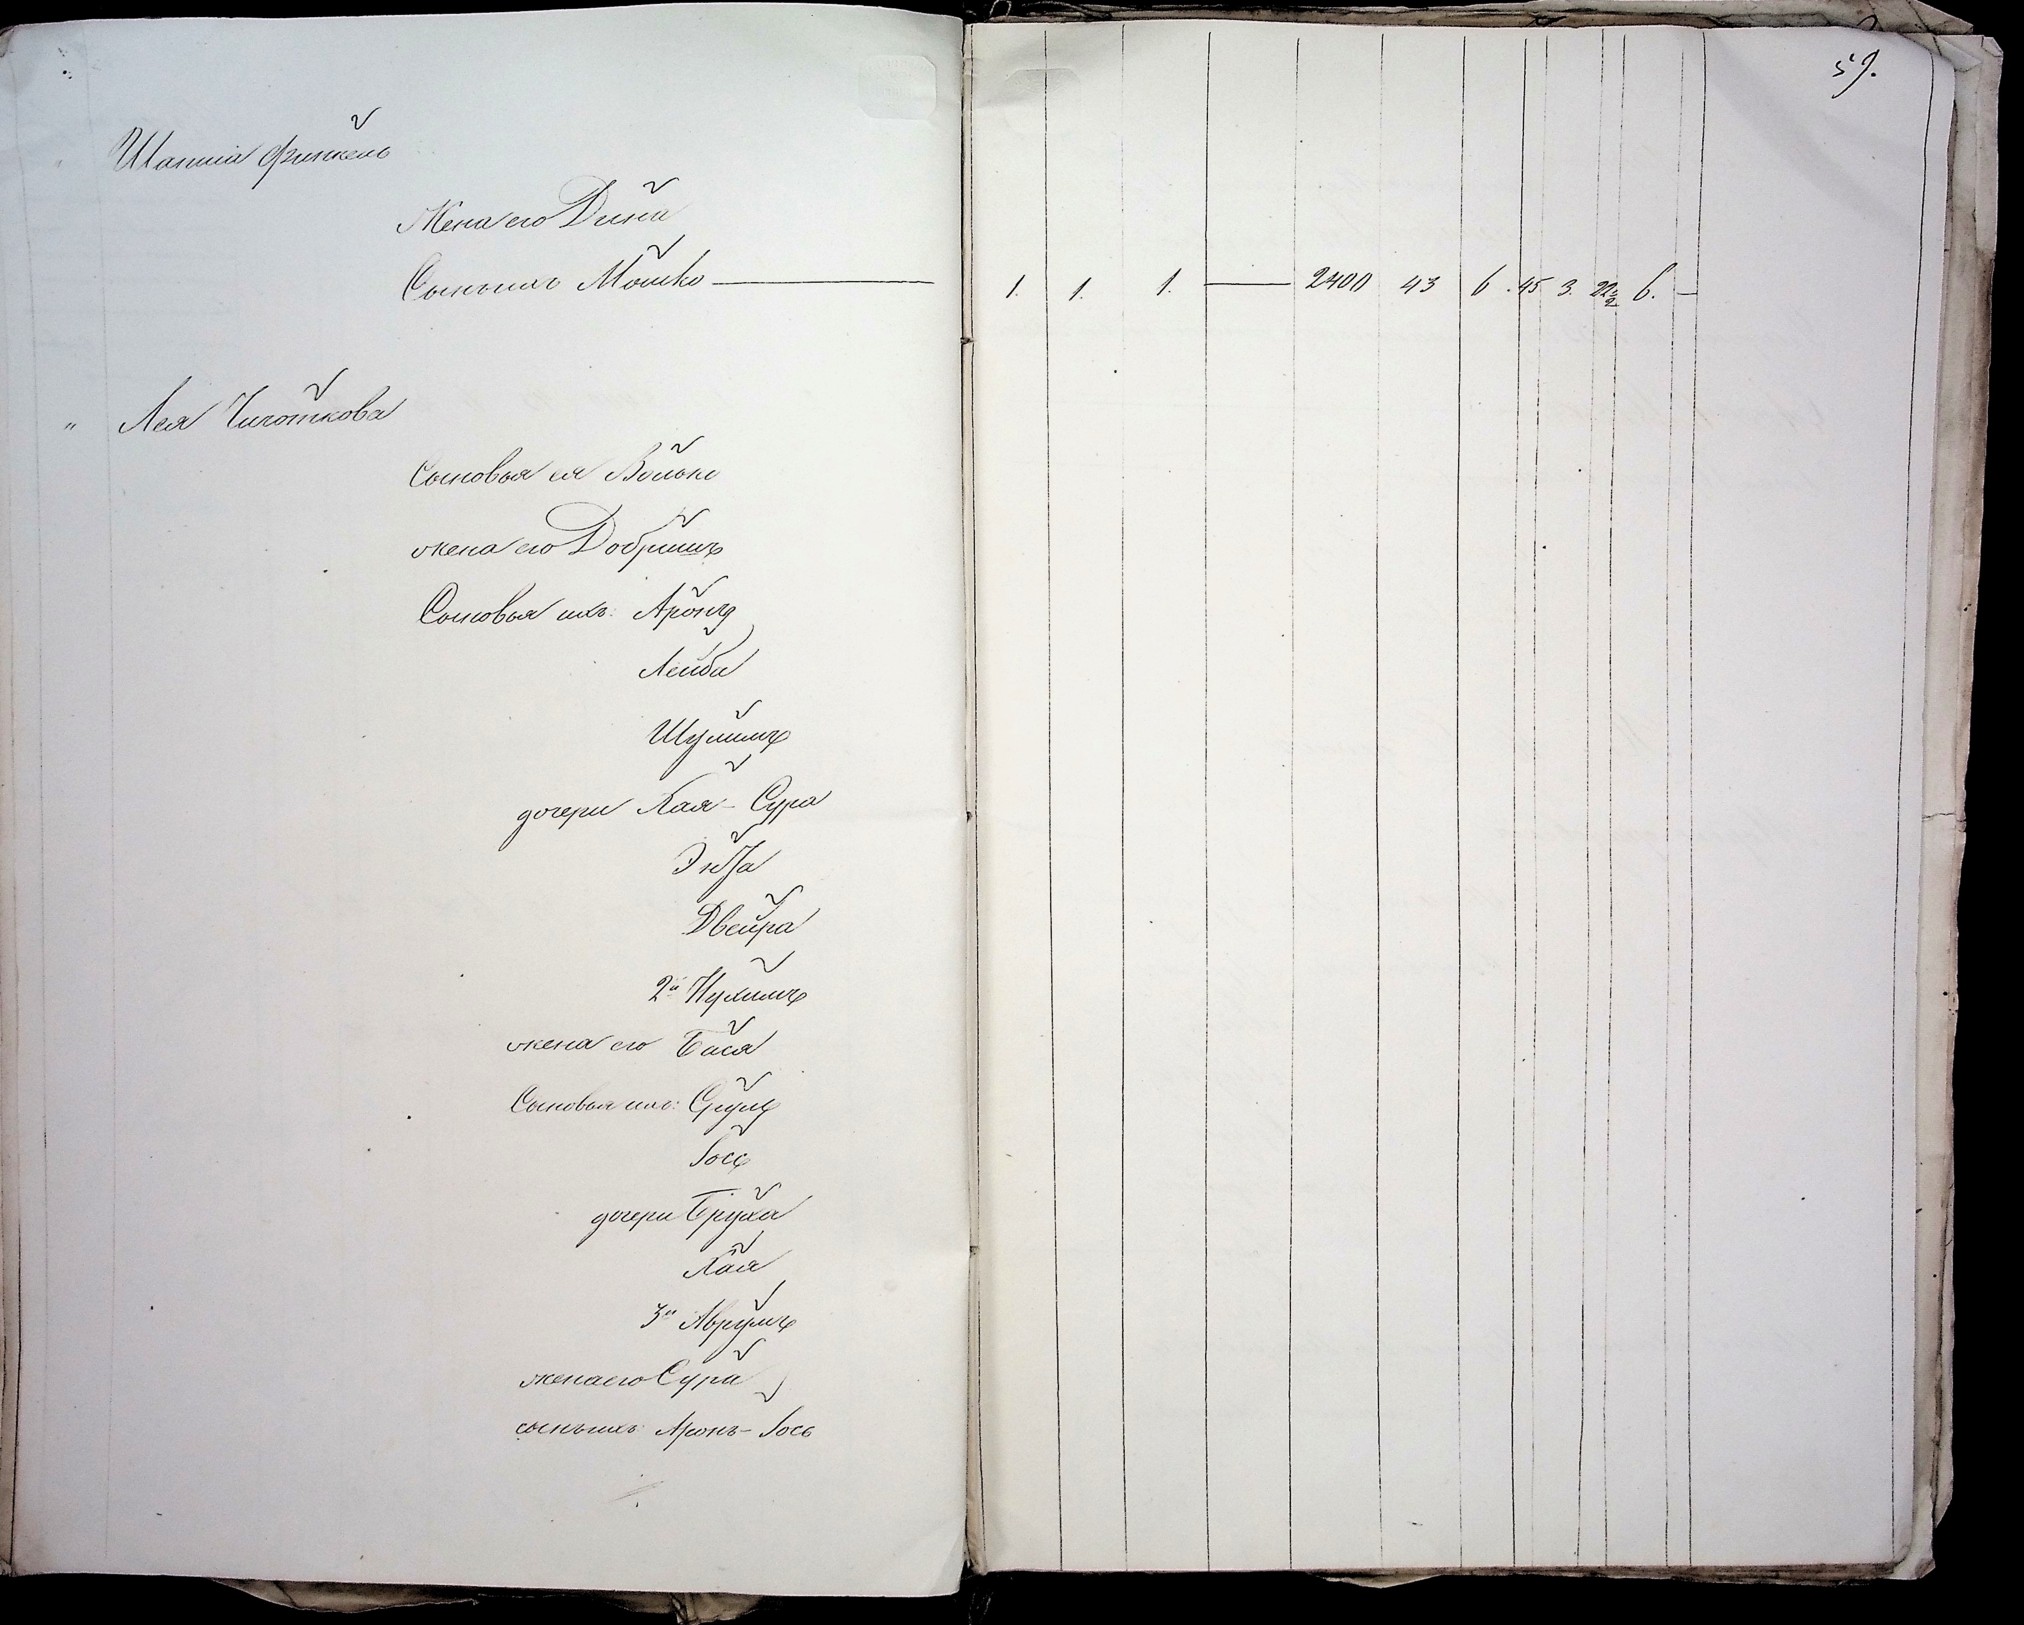 59.
Шапшiа Финкель
Жена его Дина
Сынъ ихъ Мошко
1. 1. 1. 2400 43 6 . 45 3. 22½ 6. —
" Лея
Сыновья ея Волько
жена его Добришъ
Сыновья ихъ: Аронъ
Лейба
Шулимъ
дочери Хая - Сура
Энта
Двейра
2й Нухимъ
жена его Бася
Сыновья ихъ: Срулъ
Iосъ
дочери Бруха
Хая
3й Аврумъ
жена его Сура
сынъ ихъ Аронъ - Iось